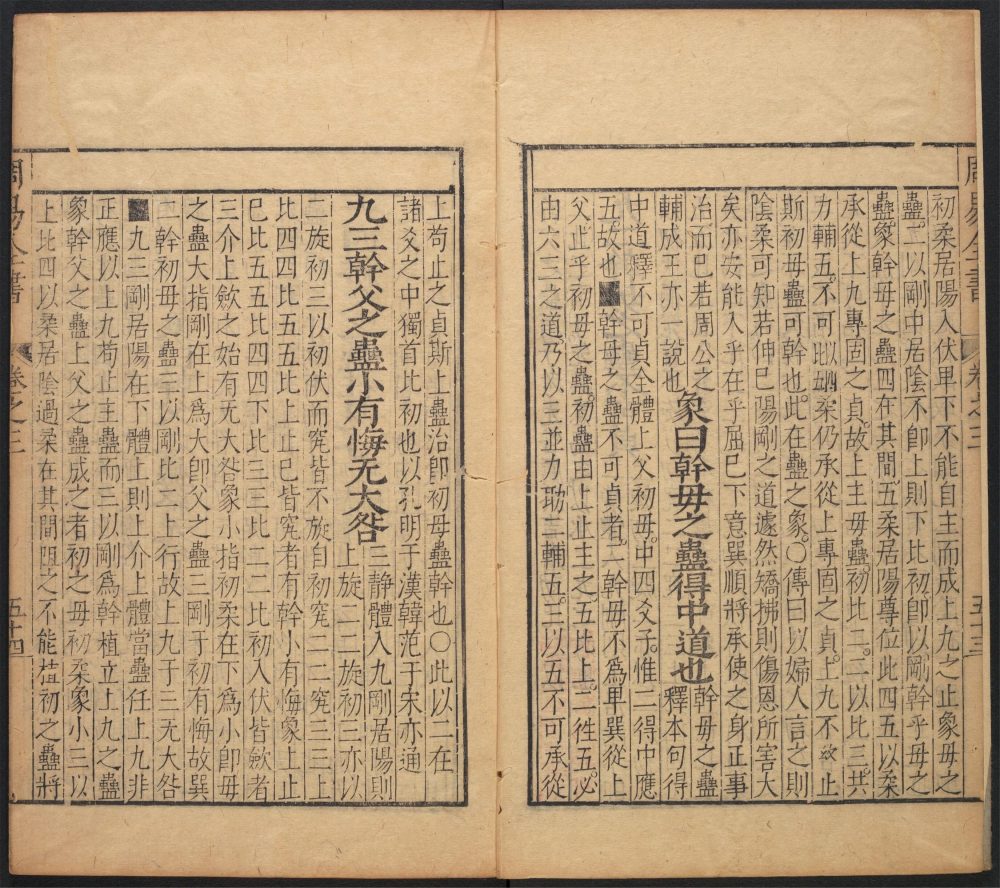 周易全書
卷之三
五十三
初柔居陽入伏卑下不能自主而成上九之止象母之
蠱二以剛中居陰不卽上則下比初卽以剛幹乎母之
蠱象幹母之蠱四在其間五柔居陽尊位此四五以柔
承從上九專固之貞故上主毋蠱初比二二以比三共
力輔五不可以柔仍承從上專固之貞上九不止
斯初毋蠱可幹也此在蠱之象○傳曰以婦人言之則
陰柔可知若伸已陽剛之道遽然矯拂則傷恩所害大
矣亦安能入乎在乎屈已下意巽順將承使之身正事
治而已若周公之輔成王亦一說也象曰幹毋之蠱得中道也幹毋之蠱釋本句得
中道釋不可貞全體上父初毋中四爻子惟二得中應
五故也■幹母之蠱不可貞者二幹毋不爲卑巽從上
父止乎初毋之蠱初蠱由上止主之五比上二徃五必
由六三之道乃以三並力助二輔五三以五不可承從
上苟止之貞斯上蠱治卽初母蠱幹也○此以二在
諸爻之中獨首比初也以孔明于漢韓范于宋亦通
九三幹父之蠱小有悔无大咎三靜體入九剛居陽則上旋二二旋初三亦以
二旋初三以初伏而宄皆不旋自初宄二二宄三三上
比四四比五五比上止已皆宄者有幹小有悔象上止
已比五五比四四下比三三比二二比初入伏皆斂者
三介上斂之始有无大咎象小指初柔在下爲小卽毋
之蠱大指剛在上爲大卽父之蠱三剛于初有悔故巽
二幹初毋之蠱三以剛比二上行故上九于三无大咎
■九三剛居陽在下體上則上介上體當蠱任上九非
正應以上九苟止主蠱而三以剛爲幹植立上九之蠱
象幹父之蠱上父之蠱成之者初之毋初柔象小三以
上比四以柔居陰過柔在其間阻之不能植初之蠱將
周易全書
卷之三
五十四